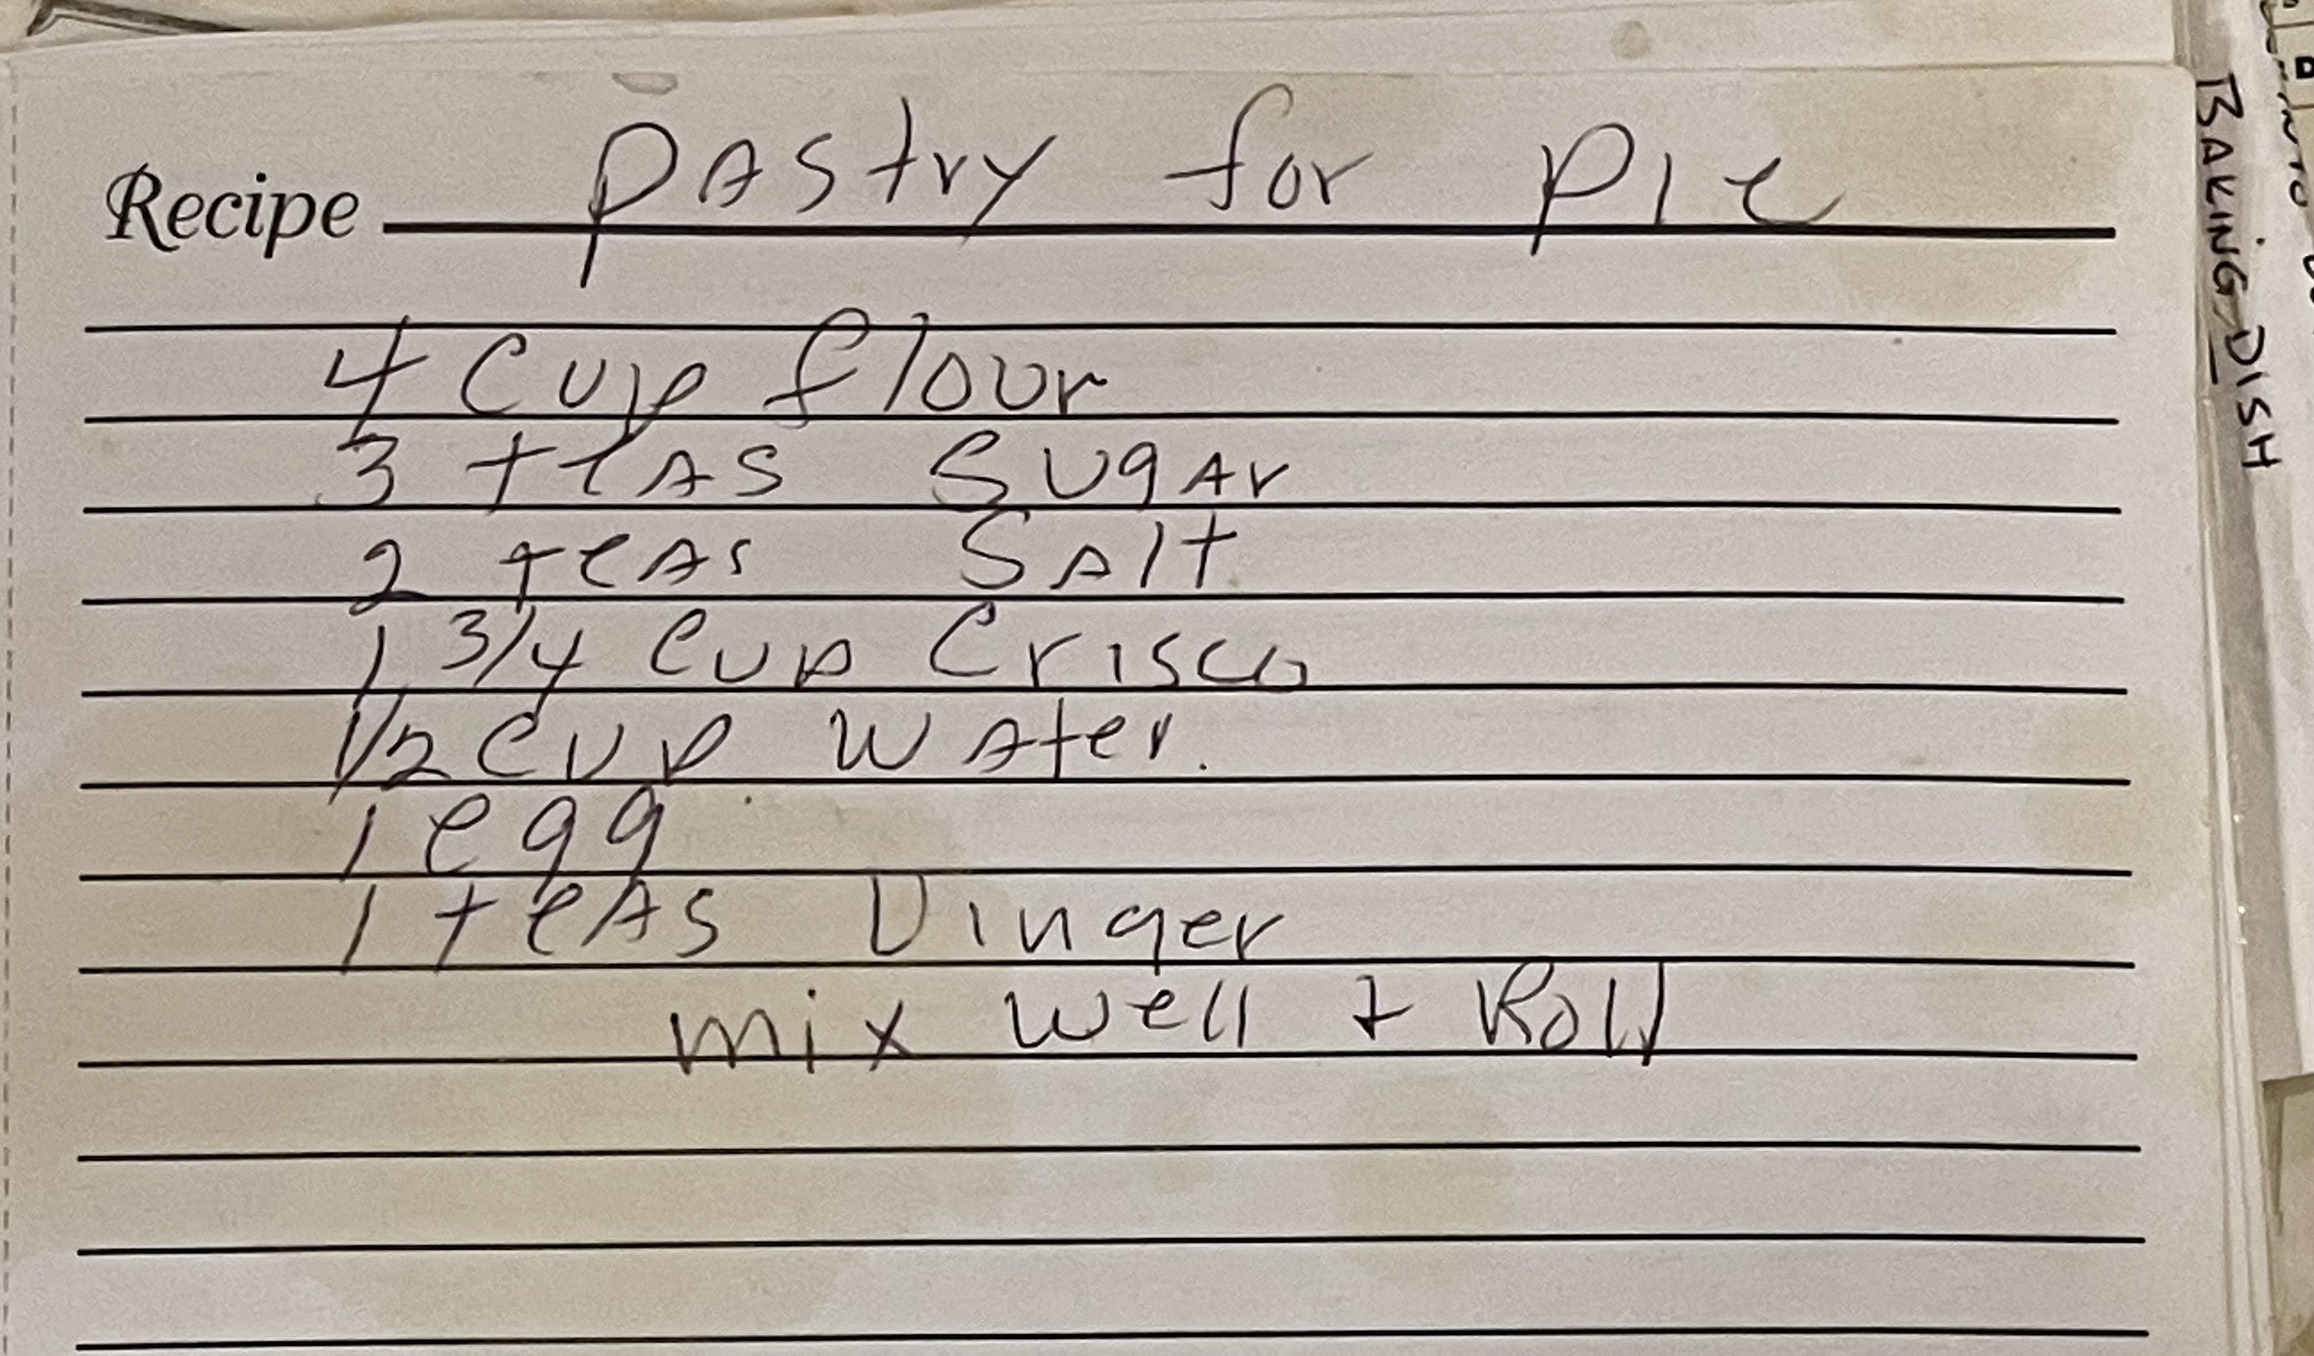 Recipe Pastry for Pie
4 Cup flour
3 teas Sugar
2 teas Salt
1 3/4 Cup Crisco
1/2 Cup Water.
1 egg
1 teas Vinger
mix well + Roll
BAKING DISH